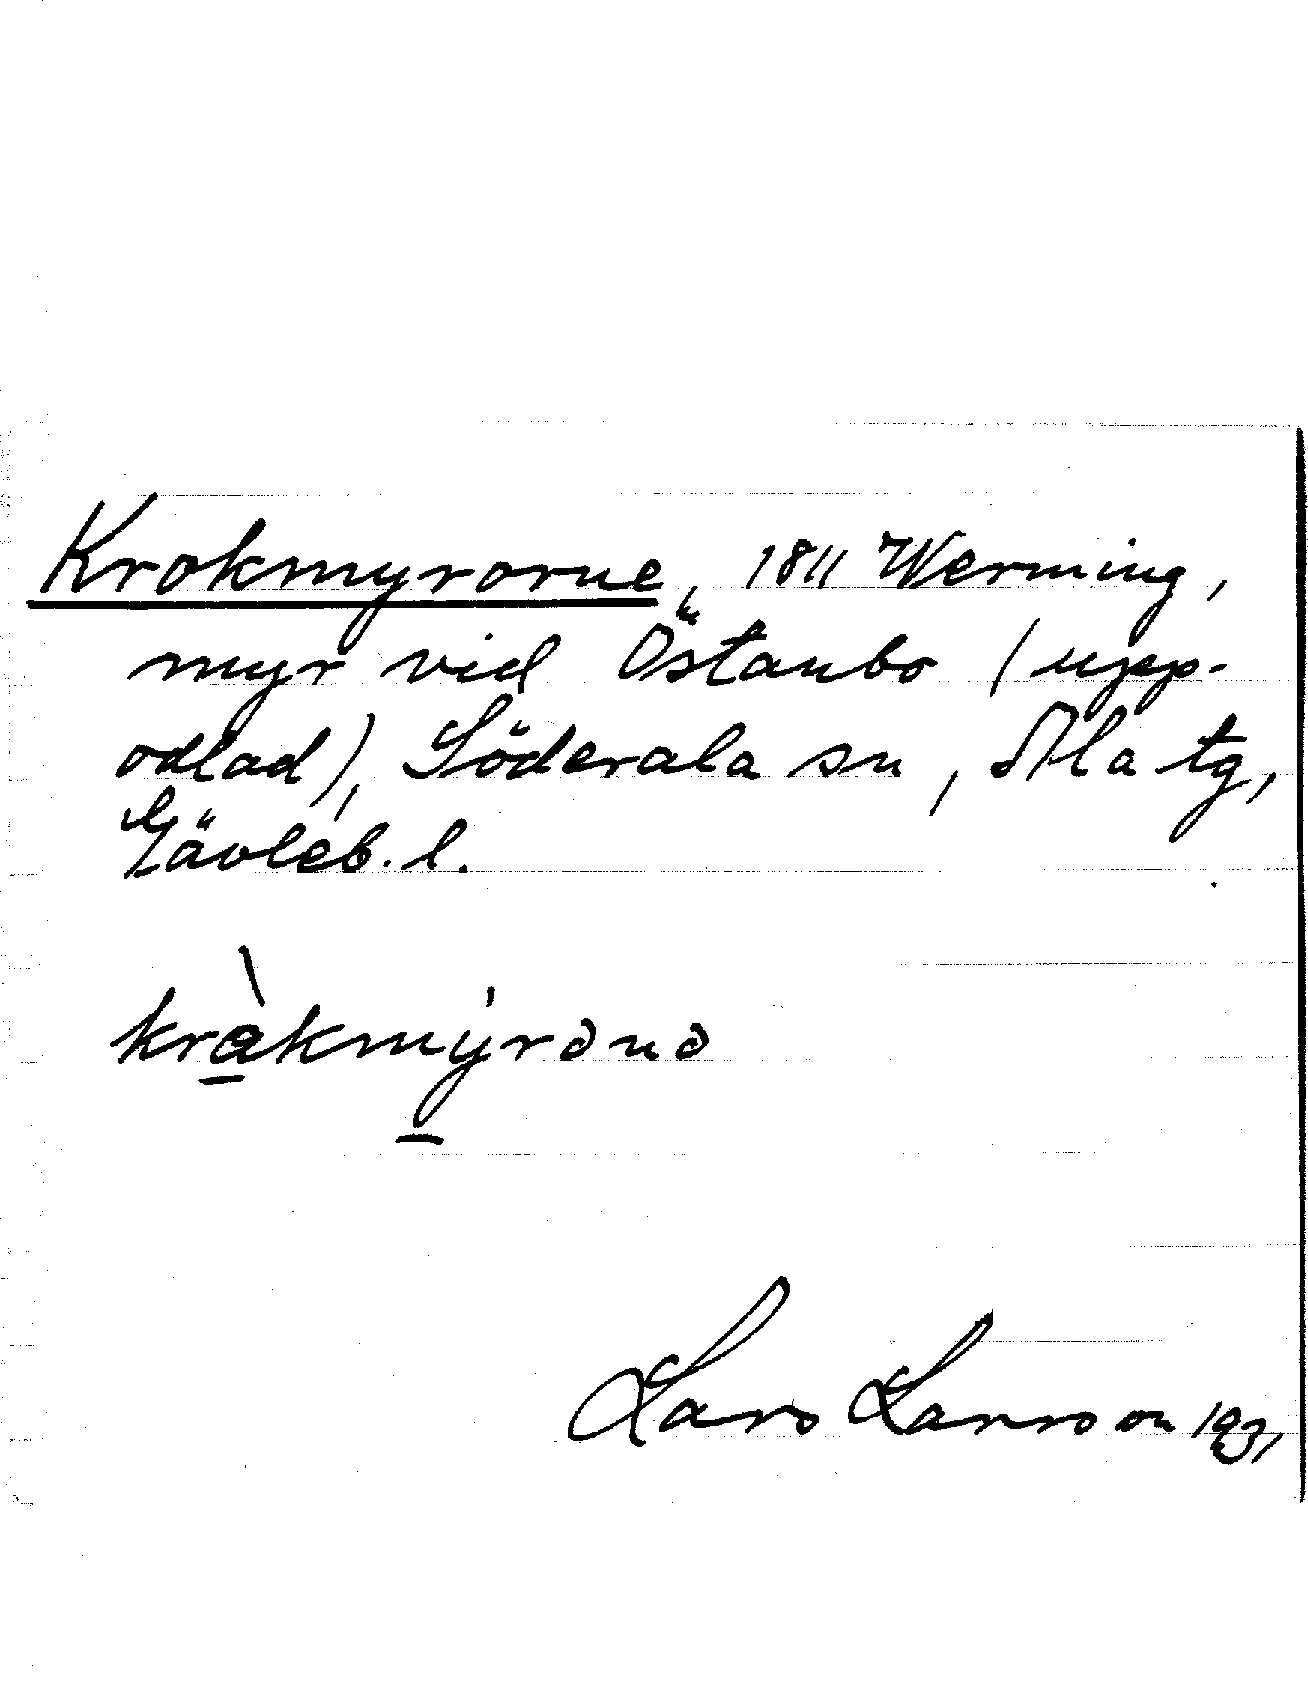 Krokmyrorne, 1811 Werming,
myr vid Östanbo (upp-
odlad), Söderala sn, Ala tg,
Gävleb. l.
kràkmýrənə
Lars Larsson 1931